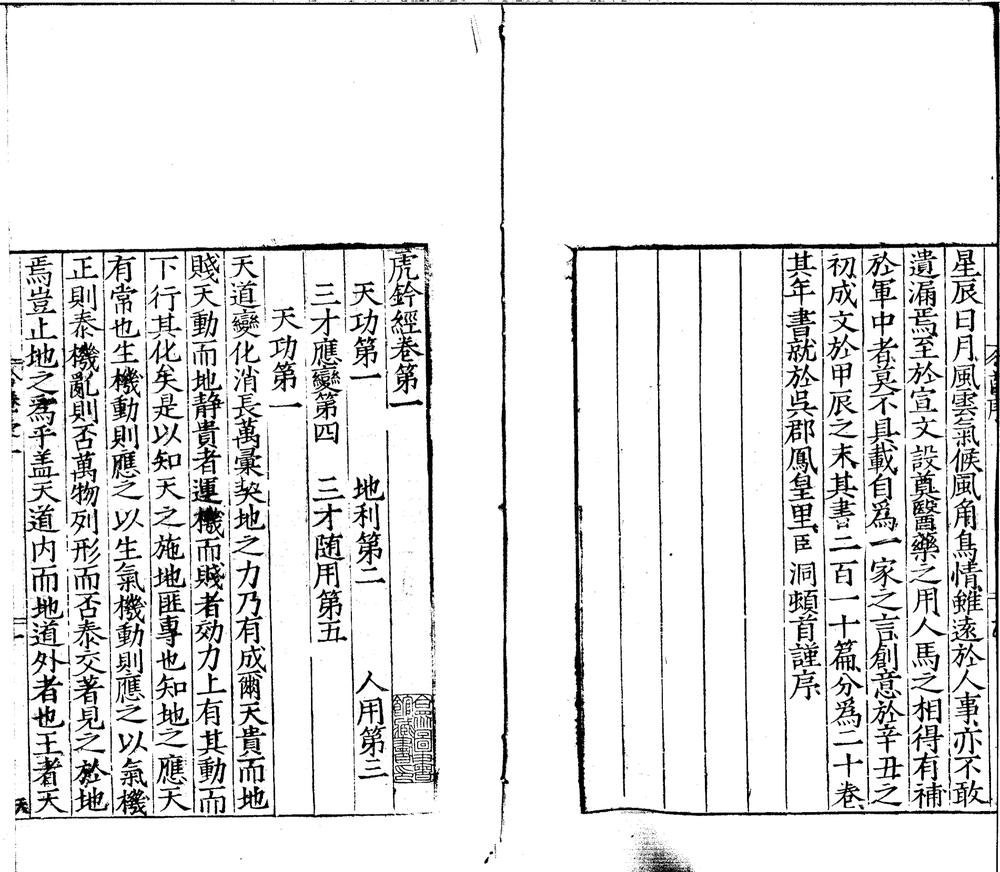 星辰日月風雲氣候風角鳥情雖遠於人事亦不敢
遺漏焉至於宣文設奠醫藥之用人馬之相得有補
於軍中者莫不具載自爲一家之言創意於辛丑之
初成文於甲辰之末其書二百一十篇分爲二十卷
其年書就於吳郡鳳皇里臣洞頓首謹序
虎鈐經卷第一
天功第一 地利第二 人用第三
三才應變第四 三才随用第五
天功第一
天道變化消長萬彙契地之力乃有成爾天貴而地
賤天動而地静貴者運機而賤者効力上有其動而
下行其化矣是以知天之施地匪專也知地之應天
有常也生機動則應之以生氣機動則應之以氣機
正則泰機亂則否萬物列形而否泰交著見之於地
焉豈止地之爲乎盖天道内而地道外者也王者天